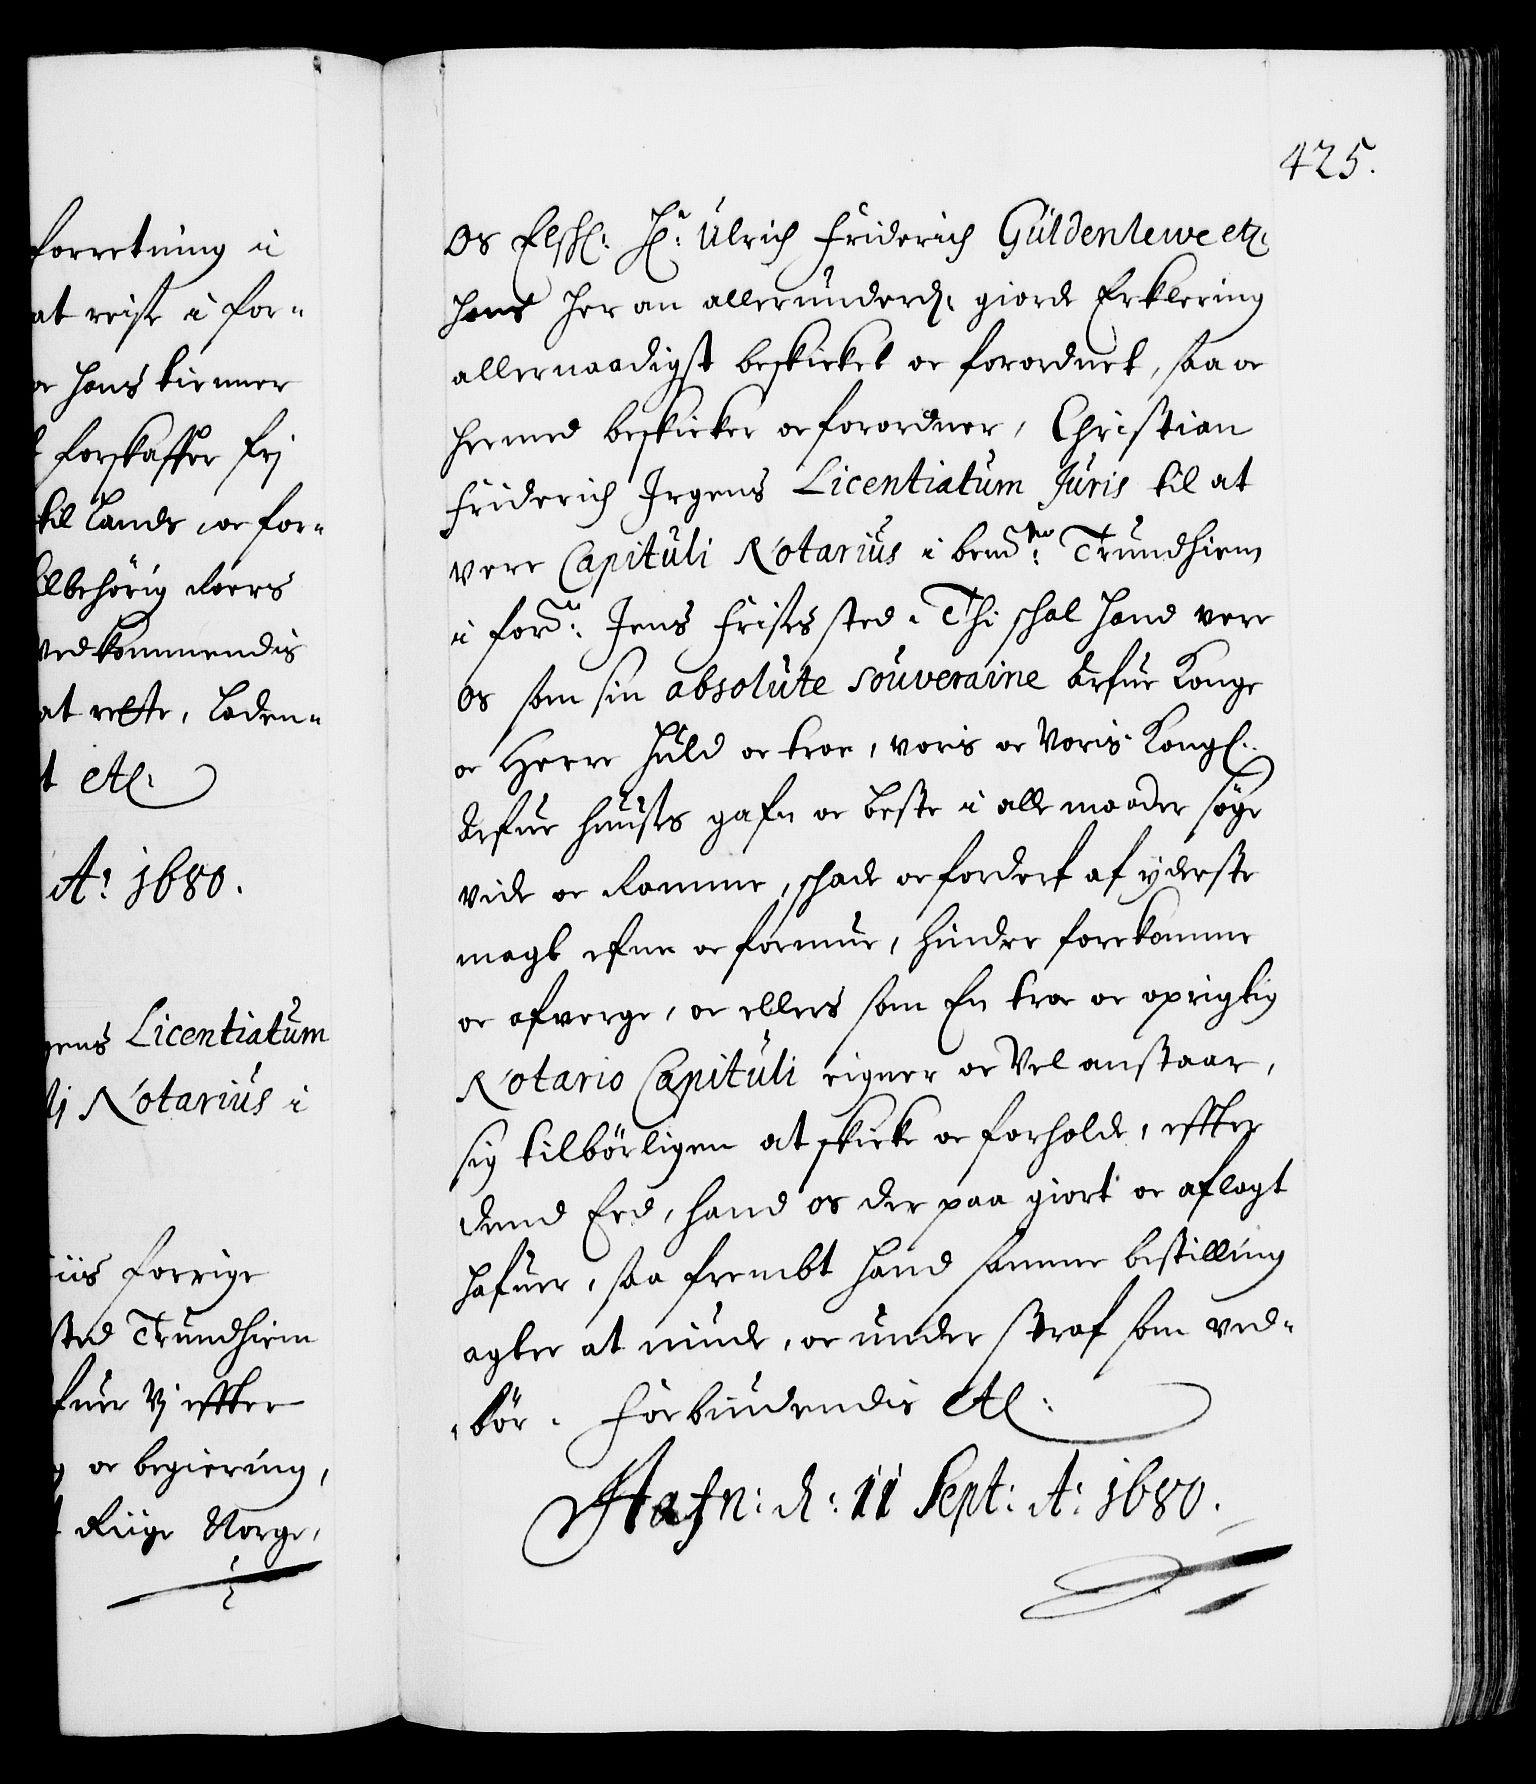 forretning i
at reise i for-
oc hans tienner
forskaffer frj
til Lands oc for-
lbehörig kaers
vedkommendis
at rette, Laden-
t etc.
A: 1680.
gens Licentiatum
lj Notarius i
iis forrige
sted Trundhiem
fuer Vj effter
g oc begiering,
Riige Norge,
425.
Os Elsch: Hr: Ulrich Friderich Güldenlewe etz.
hans her an allerunderd: giorde Erklering
allernaadigst beskicket oc forordnet, saa oc
hermed beskicker oc forordner, Christian
Friderich Irgens Licentiatum Juris til at
vere Capituli Notarius i bemte: Trundhiem
i fordn: Jens Frises sted. Thi schal hand vere
os som sin absolute souveraine Arfue Konge
oc Herre huld oc troe, voris oc Voris Kongl:
Arfue huuses gafn oc beste i alle maader söge
vide oc ramme, schade oc forderf af yderste
magt efne oc formue, hindre forekomme
oc afverge, oc ellers som En troe oc oprigtig
Notario Capituli eigner oc Vel anstaar,
sig tilbörligen at skicke oc forholde, effter
dend Eed, hand os der paa giort oc aflagt
hafuer, saa frembt hand samme bestilling
agter at niude, oc under straf som ved-
-bör. Forbiudendis etc:
Hafn: d: 11 Sept: A: 1680.